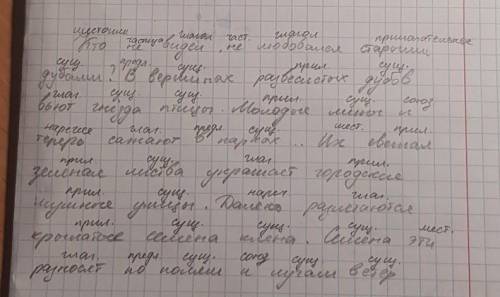 местоим. частица глагол част. глагол прилагательное
Кто не видел, не любовался старыми
сущ. предл. сущ. прил. сущ.
дубами? В вершинах развесистых дубов
глаг. сущ. сущ. прил. сущ. союз
вьют гнёзда птицы. Молодые липы и
наречие глаг. предл. сущ. мест. прил.
сажают в парках... Их
прил. сущ. глаг. прил.
зеленая листва украшает городские
прил. сущ. нареч. глаг.
шумные улицы. Далеко разлетаются
прил. сущ. сущ. сущ. мест.
крылатые семена клёна. Семена эти
глаг. предл. сущ. союз сущ. сущ.
разносят по полям и лугам ветер